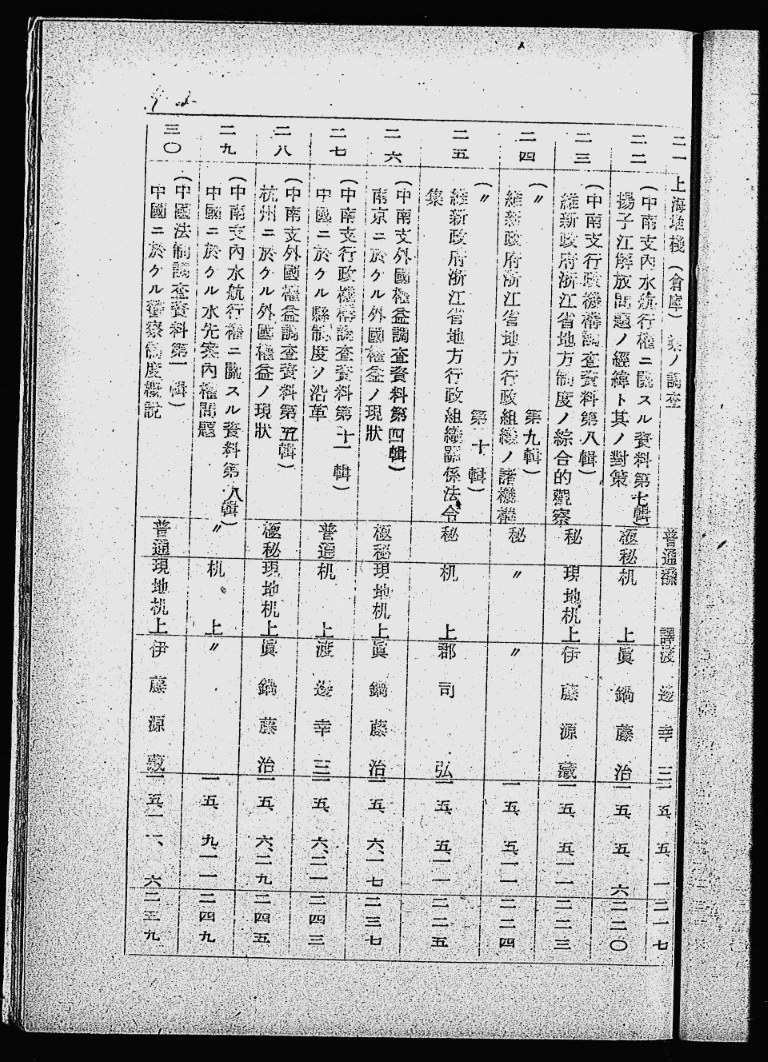 二一
上海堆棧(倉庫)業ノ調査
普通
譯
渡邊幸三
一五、五、一
二一七
二二
(中南支內水航行權ニ關スル資料第七輯)
揚子江解放問題ノ經緯ト其ノ對策
極秘
机上
眞鍋藤治
一五、五、六
二二〇
二三
(中南支行政機構調査資料第八輯)
維新政府浙江省地方制度ノ綜合的觀察
秘
現地机上
伊藤源藏
一五、五、一一
二二三
二四
(〃 第九輯)
維新政府浙江省地方行政組織ノ諸機構
秘
〃
〃
一五、五、一一
二二四
二五
(〃 第十輯)
維新政府浙江省地方行政組織關係法令
集
秘
机上
郡司弘
一五、五、一一
二二五
二六
(中南支外國權益調査資料第四輯)
南京ニ於ケル外國權益ノ現狀
極秘
現地机上
眞鍋藤治
一五、六、一七
二三七
二七
(中南支行政機構調査資料第十一輯)
中國ニ於ケル縣制度ノ沿革
普通
机上
渡邊幸三
一五、六、二一
二四三
二八
(中南支外國權益調査資料第五輯)
杭州ニ於ケル外國權益ノ現狀
極秘
現地机上
眞鍋藤治
一五、六、二九
二四五
二九
(中南支內水航行權ニ關スル資料第八輯)
中國ニ於ケル水先案內權問題
〃
机上
〃
一五、九、一一
二四九
三〇
(中國法制調査資料第一輯)
中國ニ於ケル警察制度槪說
普通
現地机上
伊藤源藏
一五、一一、六
二五九